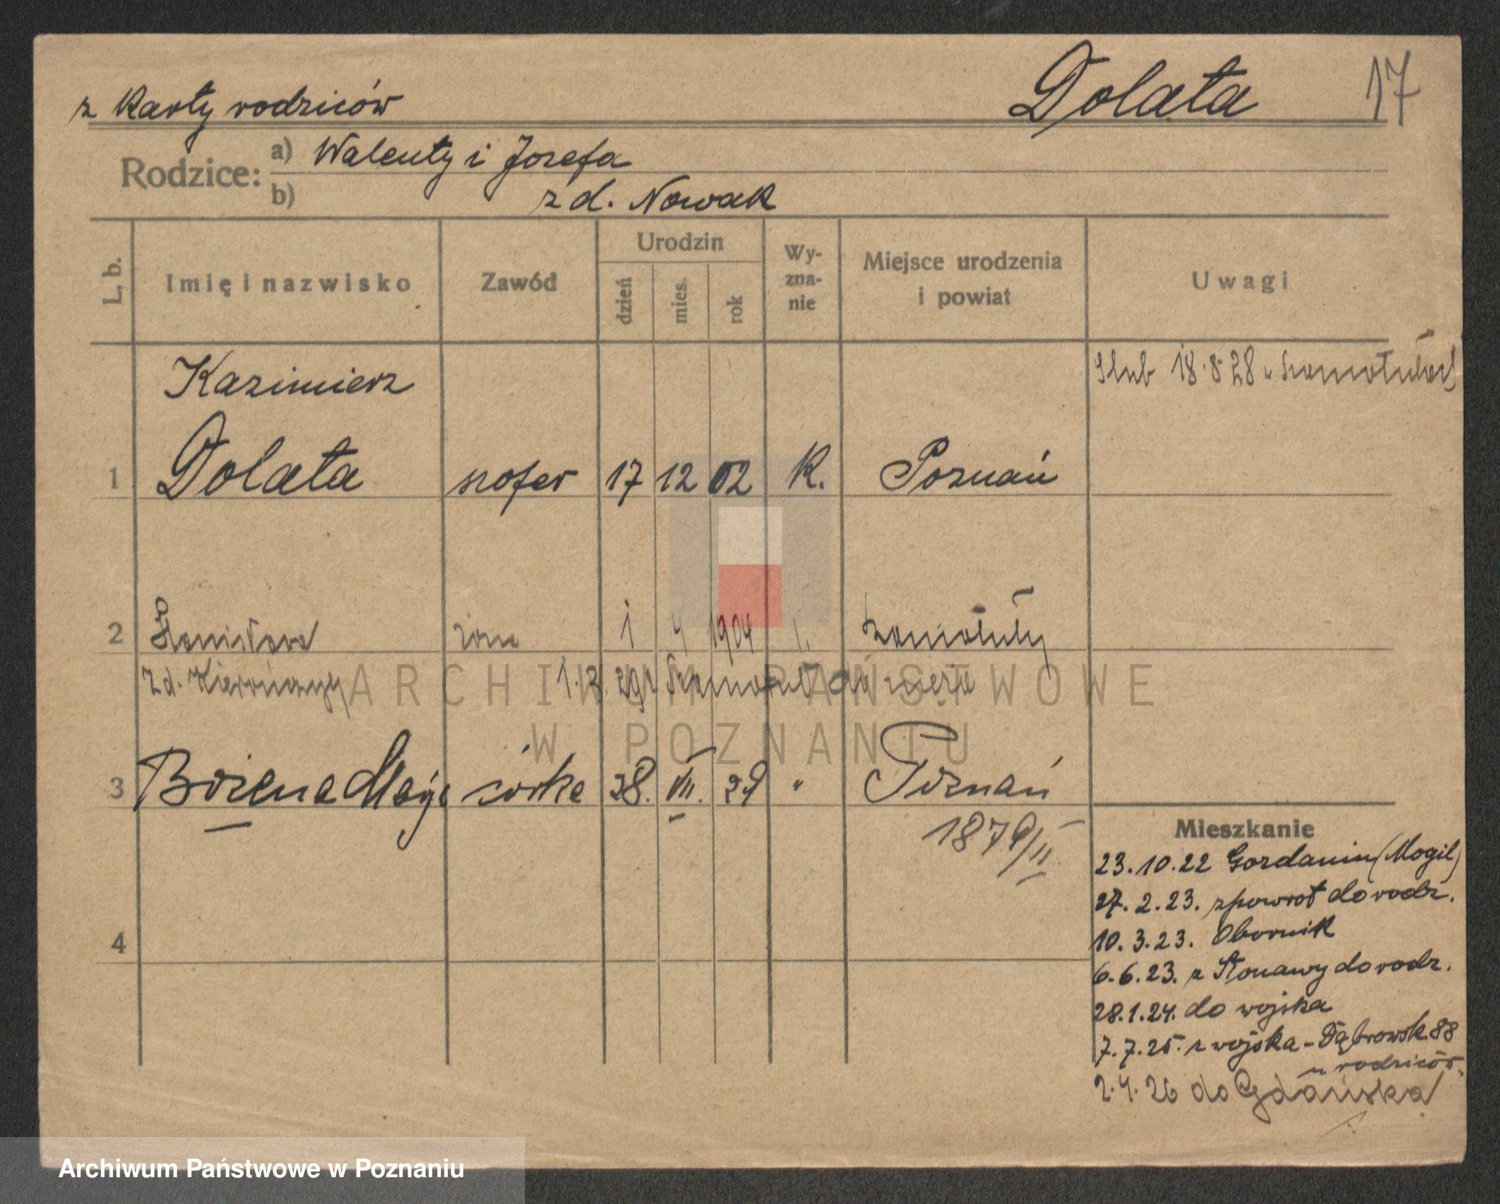 z Karty rodziców
Dolata
17
Rodzice: a) Walenty i Jozefa
b) zd. Nowak
L. b.
Imię i nazwisko
Zawód
Urodzin
dzień
mies.
rok
Wy-
zna-
nie
Miejsce urodzenia
i powiat
Uwagi
Kazimierz
Ślub 18.8.28 w Szamotułach
1 Dolata szofer 17 12 02 K. Poznań
2 Stanisława żona 1 4 1904 Szamotuły
zd. 1.2.29 z do męża
3 Bożena córka 28. VII. 29 " Poznań
1879/II
4
Mieszkanie
23.10.22 Gozdanin (Mogil)
27.2.23. zpowrot do rodz.
10.3.23. Obornik
6.6.23. z do rodz.
28.1.24. do wojska
7.7.25. z wojska - Dąbrowsk. 88
u rodziców
2.4.26 do Gdańska
ARCHIWUM PAŃSTWOWE
W POZNANIU
Archiwum Państwowe w Poznaniu